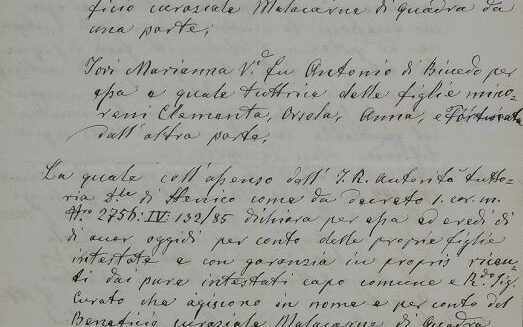 ficio curaziale Malacarne di Quadra da
una parte;
Jori Marianna V.ª fu Antonio di Bivedo per
essa e quale tuttrice delle figlie mino-
reni Clementa, Orsola, Anna, e Fortunata
dall'altra parte,
La quale coll'assenso dall'I. R. Autorità tutto-
ria d.lla di Stenico come da decreto 1. cor. m.
Nro 2756: IV: 132/85 dichiara per essa ed eredi di
di aver oggidi per conto delle proprie figlie
intestate e con garanzia in propris
ti dai pure intestati capo comune e R.do Sig.
Curato che agiscono in nome e per conto del
Beneficio curaziale Malacarne di Quadra